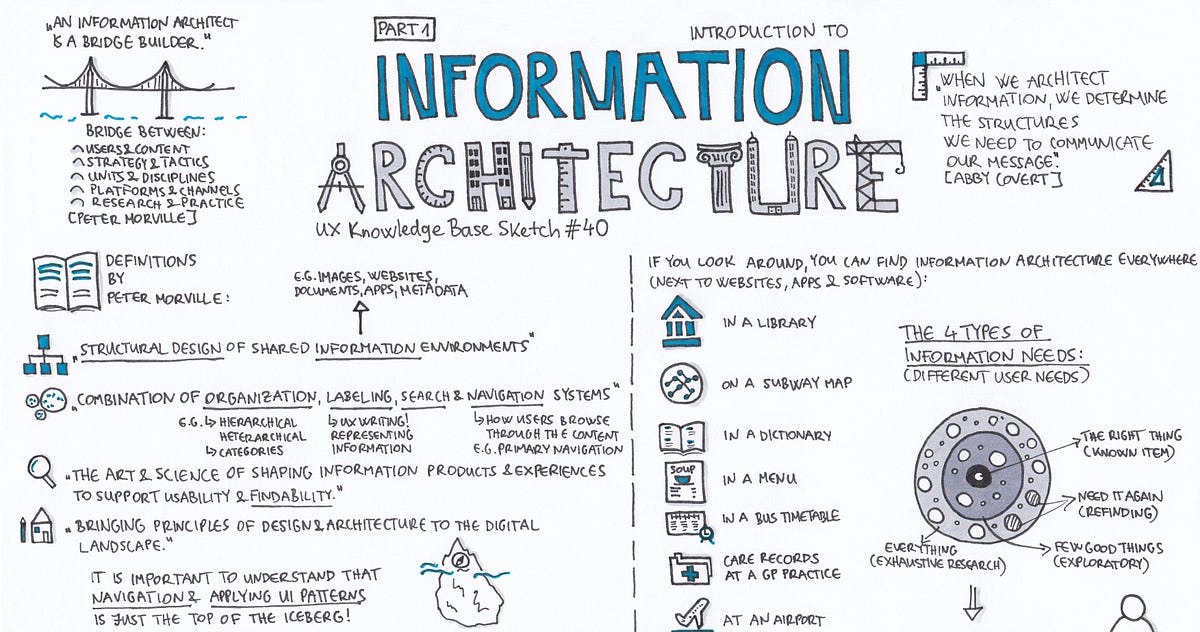 „AN INFORMATION ARCHITECT
IS A BRIDGE BUILDER."
BRIDGE BETWEEN:
USERS & CONTENT
STRATEGY & TACTICS
UNITS & DISCIPLINES
PLATFORMS & CHANNELS
RESEARCH & PRACTICE
[PETER MORVILLE]
PART 1
INTRODUCTION TO
INFORMATION
ARCHITECTURE
UX Knowledge Base Sketch #40
„WHEN WE ARCHITECT
INFORMATION, WE DETERMINE
THE STRUCTURES
WE NEED TO COMMUNICATE
OUR MESSAGE."
[ABBY COVERT]
DEFINITIONS
BY
PETER MORVILLE:
E.G. IMAGES, WEBSITES,
DOCUMENTS, APPS, METADATA
„STRUCTURAL DESIGN OF SHARED INFORMATION ENVIRONMENTS"
„COMBINATION OF ORGANIZATION, LABELING, SEARCH & NAVIGATION SYSTEMS"
E.G. HIERARCHICAL
HETERARCHICAL
CATEGORIES
UX WRITING!
REPRESENTING
INFORMATION
HOW USERS BROWSE
THROUGH THE CONTENT
E.G. PRIMARY NAVIGATION
„THE ART & SCIENCE OF SHAPING INFORMATION PRODUCTS & EXPERIENCES
TO SUPPORT USABILITY & FINDABILITY."
„BRINGING PRINCIPLES OF DESIGN & ARCHITECTURE TO THE DIGITAL
LANDSCAPE."
IT IS IMPORTANT TO UNDERSTAND THAT
NAVIGATION & APPLYING UI PATTERNS
IS JUST THE TOP OF THE ICEBERG!
IF YOU LOOK AROUND, YOU CAN FIND INFORMATION ARCHITECTURE EVERYWHERE
(NEXT TO WEBSITES, APPS & SOFTWARE):
IN A LIBRARY
ON A SUBWAY MAP
IN A DICTIONARY
SOUP
IN A MENU
IN A BUS TIMETABLE
CARE RECORDS
AT A GP PRACTICE
AT AN AIRPORT
THE 4 TYPES OF
INFORMATION NEEDS:
(DIFFERENT USER NEEDS)
THE RIGHT THING
(KNOWN ITEM)
NEED IT AGAIN
(REFINDING)
FEW GOOD THINGS
(EXPLORATORY)
EVERYTHING
(EXHAUSTIVE RESEARCH)